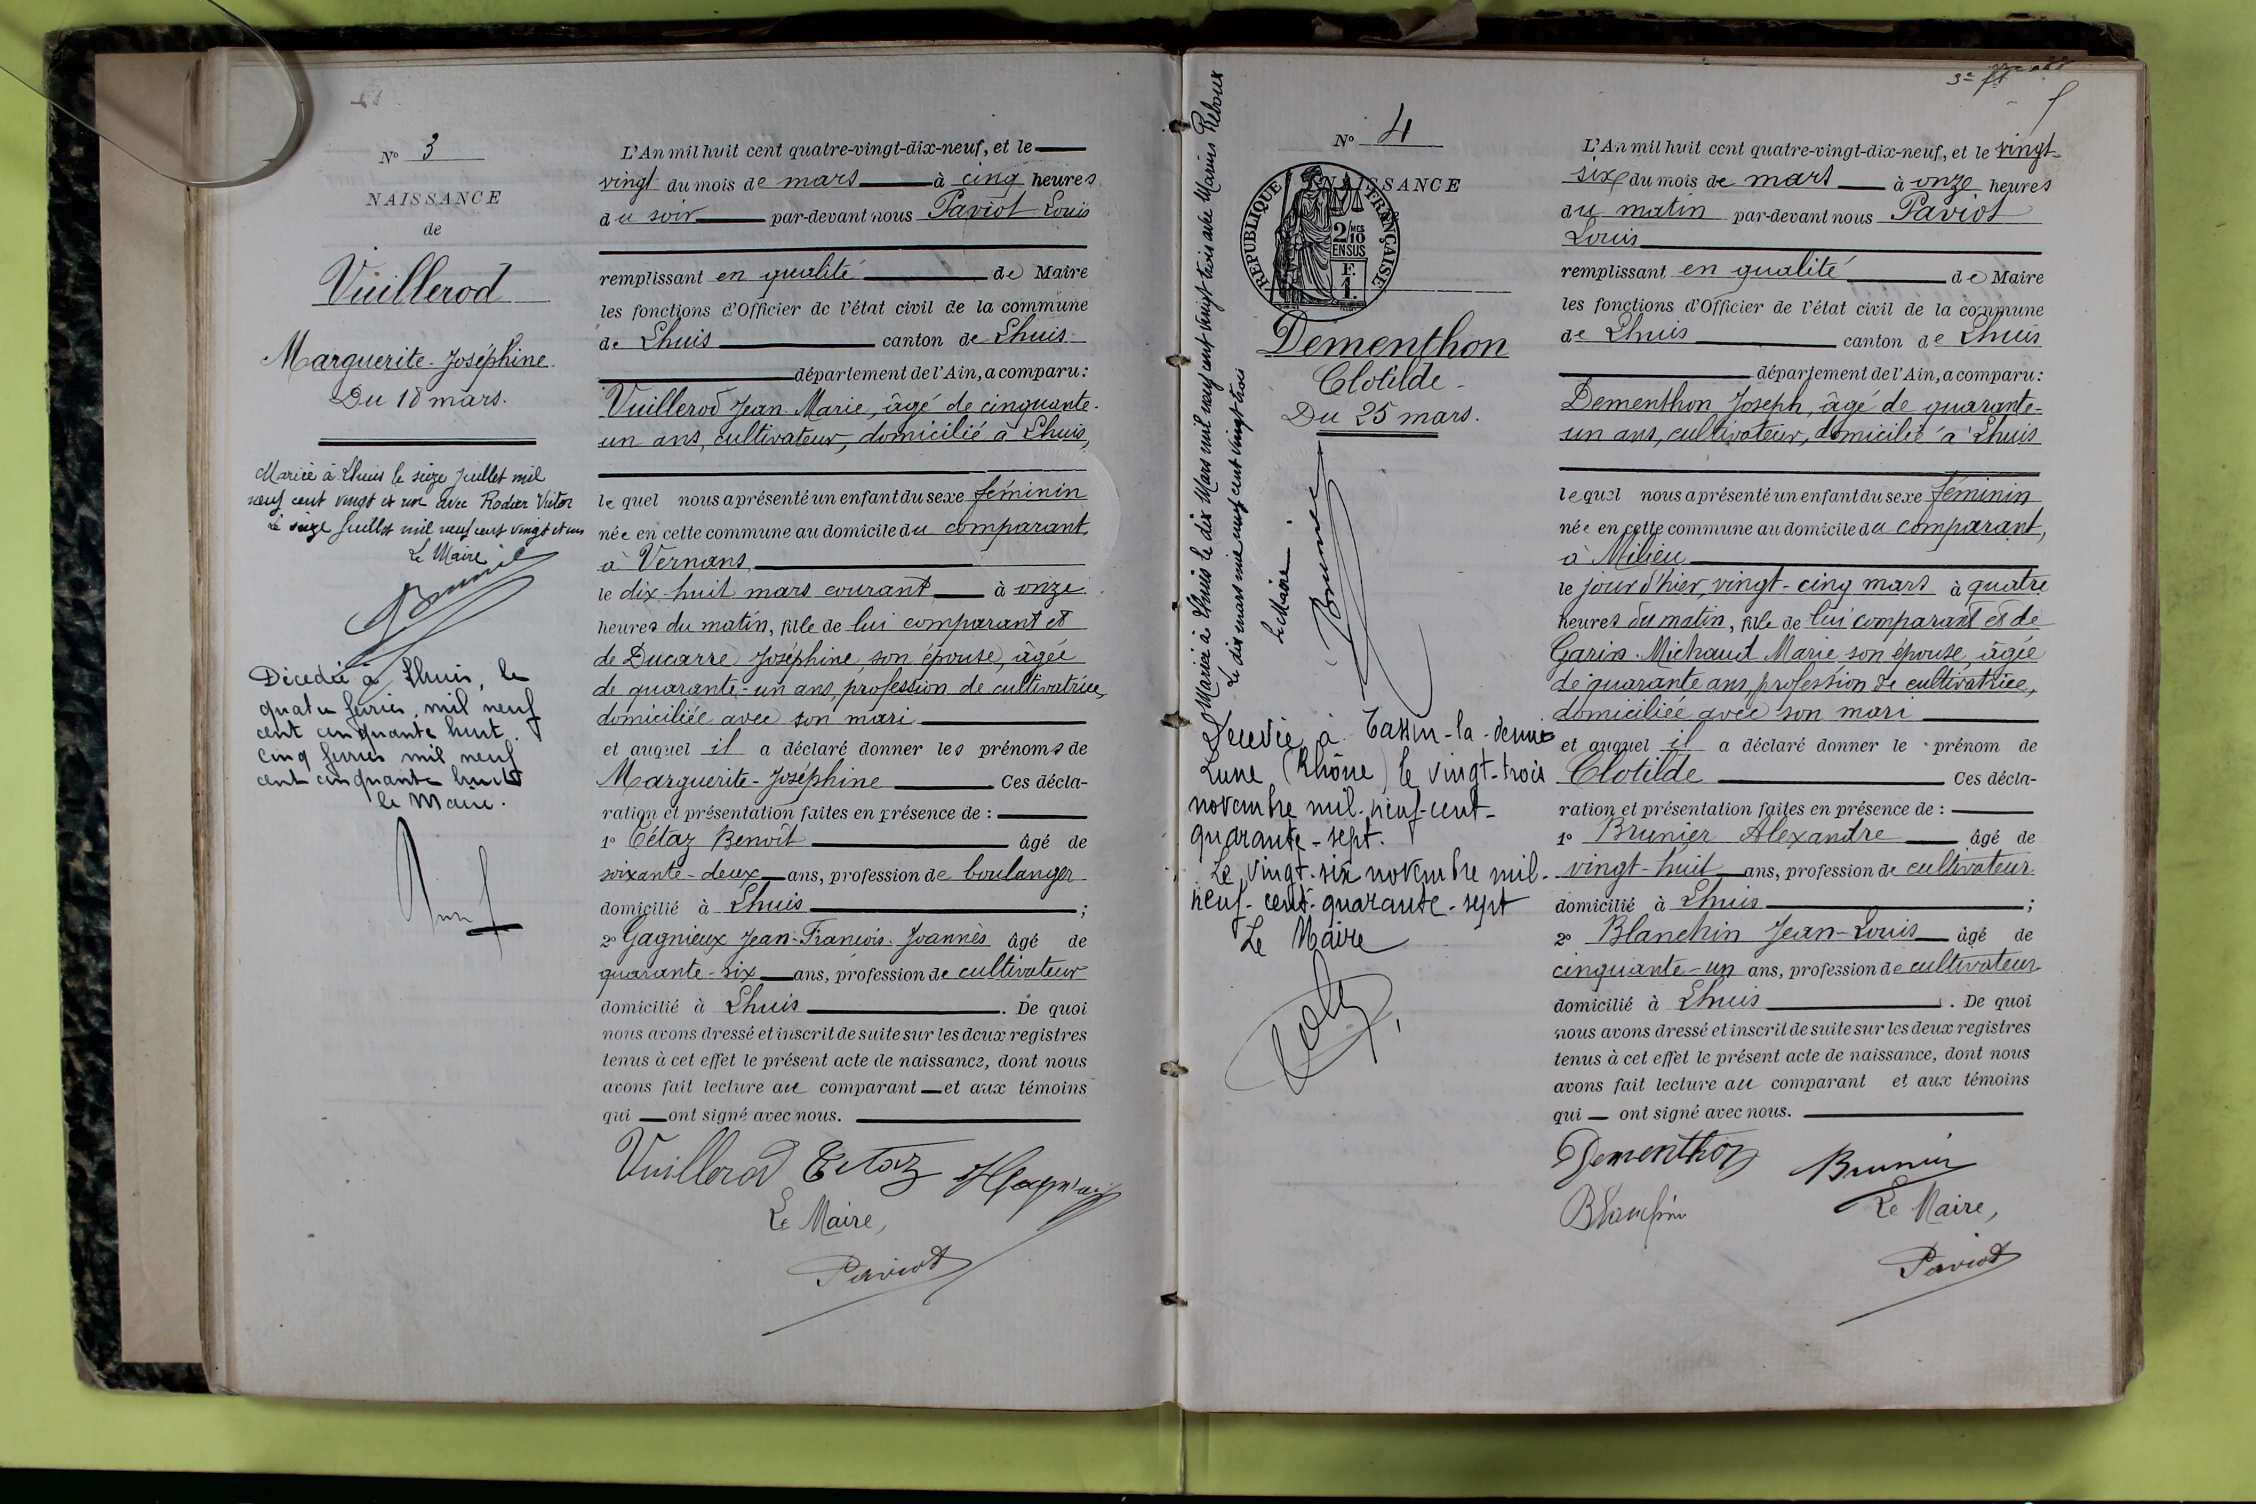 N° 3
NAISSANCE
de
Vuillerod
Marguerite-Joséphine.
Du 18 mars.
Mariée à Lhuis le seize Juillet mil
neuf cent vingt et un avec Rodier Victor
Le seize Juillet mil neuf cent vingt et un
Le Maire
Décédée à Lhuis, le
quatre février, mil neuf
cent cinquante huit.
cinq février mil neuf
cent cinquante huit
le Maire.
L'An mil huit cent quatre-vingt-dix-neuf, et le
vingt du mois de mars à cinq heures
du soir par-devant nous Paviot Louis
remplissant en qualité de Maire
les fonctions d'Officier de l'état civil de la commune
de Lhuis canton de Lhuis
département de l'Ain, a comparu:
Vuillerod Jean-Marie, âgé de cinquante-
un ans, cultivateur, domicilié à Lhuis,
le quel nous a présenté un enfant du sexe féminin
née en cette commune au domicile du comparant,
à Vernans,
le dix-huit mars courant à onze
heures du matin, fille de lui comparant et
de Ducarre Joséphine, son épouse, âgée
de quarante-un ans, profession de cultivatrice,
domiciliée avec son mari
et auquel il a déclaré donner les prénoms de
Marguerite-Joséphine Ces décla-
ration et présentation faites en présence de :
1° Tétaz Benoît âgé de
soixante-deux ans, profession de boulanger
domicilié à Lhuis ;
2° Gagnieux Jean-François-Joannès âgé de
quarante-six ans, profession de cultivateur
domicilié à Lhuis . De quoi
nous avons dressé et inscrit de suite sur les deux registres
tenus à cet effet le présent acte de naissance, dont nous
avons fait lecture au comparant et aux témoins
qui ont signé avec nous.
Vuillerod Tétaz
Le Maire,
Paviot
N° 4
NAISSANCE
RÉPUBLIQUE FRANÇAISE
2/10 MES
EN SUS
F.
1.
Dementhon
Clotilde-
Du 25 mars.
Mariée à Lhuis le dix Mars mil neuf cent vingt trois avec Marius Reloux
Le dix mars mil neuf cent vingt trois
Le Maire
Décédée à Tassin-la-demie
Lune (Rhône) le vingt-trois
novembre mil-neuf-cent-
quarante-sept.
Le vingt-six novembre mil-
neuf-cent-quarante-sept
Le Maire
L'An mil huit cent quatre-vingt-dix-neuf, et le vingt-
six du mois de mars à onze heures
du matin par-devant nous Paviot
Louis
remplissant en qualité de Maire
les fonctions d'Officier de l'état civil de la commune
de Lhuis canton de Lhuis
département de l'Ain, a comparu:
Dementhon Joseph, âgé de quarante-
un ans, cultivateur, domicilié à Lhuis
le quel nous a présenté un enfant du sexe féminin
née en cette commune au domicile du comparant,
à Milieu
le jour d'hier, vingt-cinq mars à quatre
heures du matin, fille de lui comparant et de
Garin-Michaud Marie son épouse, âgée
de quarante ans, profession de cultivatrice,
domiciliée avec son mari
et auquel il a déclaré donner le prénom de
Clotilde Ces décla-
ration et présentation faites en présence de :
1° Brunier Alexandre âgé de
vingt-huit ans, profession de cultivateur
domicilié à Lhuis ;
2° Blanchin Jean-Louis âgé de
cinquante-un ans, profession de cultivateur
domicilié à Lhuis . De quoi
nous avons dressé et inscrit de suite sur les deux registres
tenus à cet effet le présent acte de naissance, dont nous
avons fait lecture au comparant et aux témoins
qui ont signé avec nous.
Dementhon Brunier
Blanchin Le Maire,
Paviot